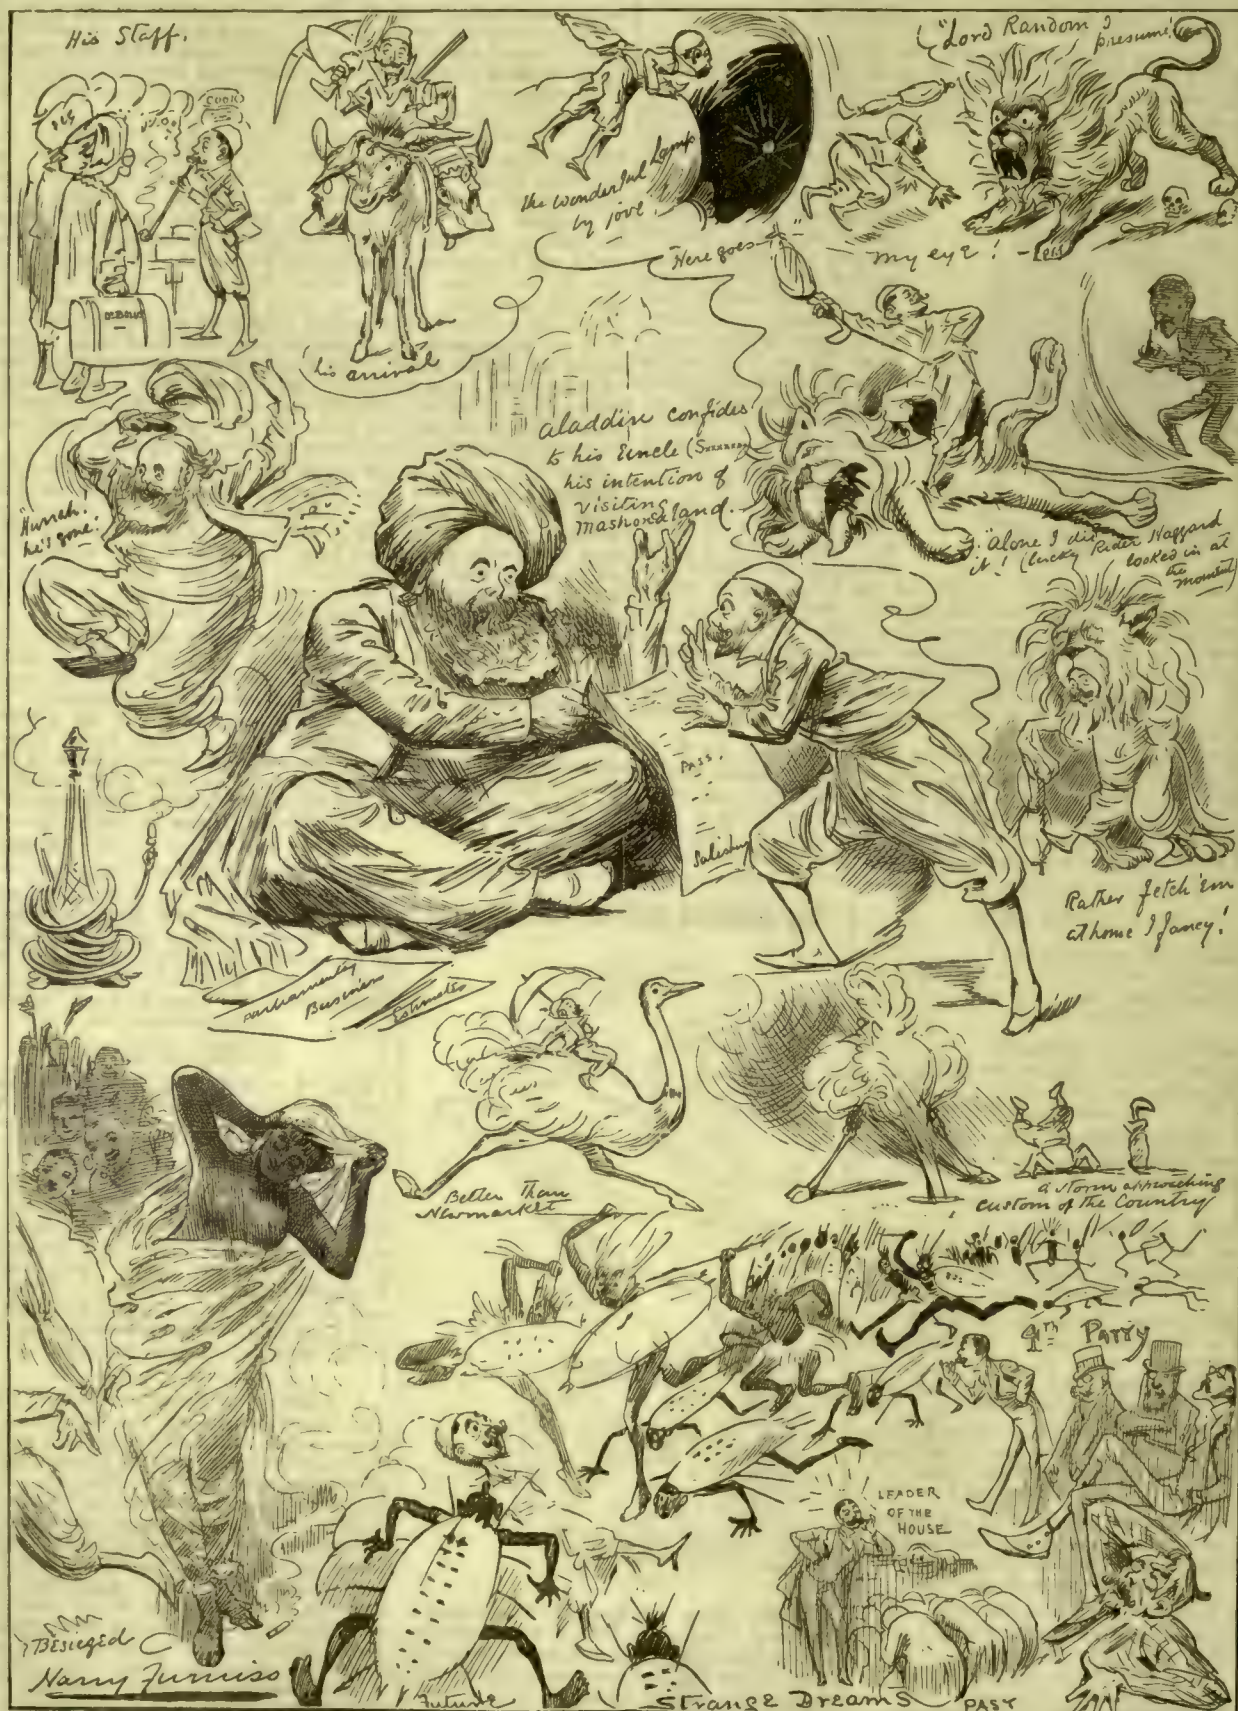 His Staff.
COOK
his arrival
the wonderful Lamp
by jove!
"Lord Random I
presume!"
My eye! -
"Here goes"
Aladdin confides
to his Uncle (S........)
his intention of
visiting
Mashonaland.
"Hurrah!
he's gone!"
"alone I did
it! (lucky Rider Haggard
looked in at
the moment)
PASS.
Salisbury
Rather fetch 'em
at home I fancy!
Parliamentary
Business
Estimates
Better than
Newmarket
a storm approaching
custom of the Country
4TH PARTY
LEADER
OF THE
HOUSE
BESIEGED
Harry Furniss
Future
STRANGE DREAMS
PAST